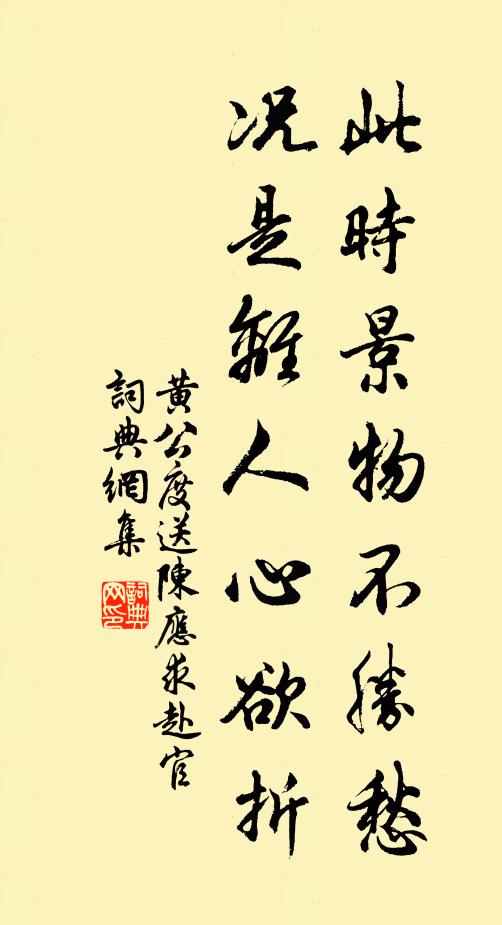 此時景物不勝愁
况是離人心欲折
黄公度送陳應求赴官
詞典網集
詞典
网印